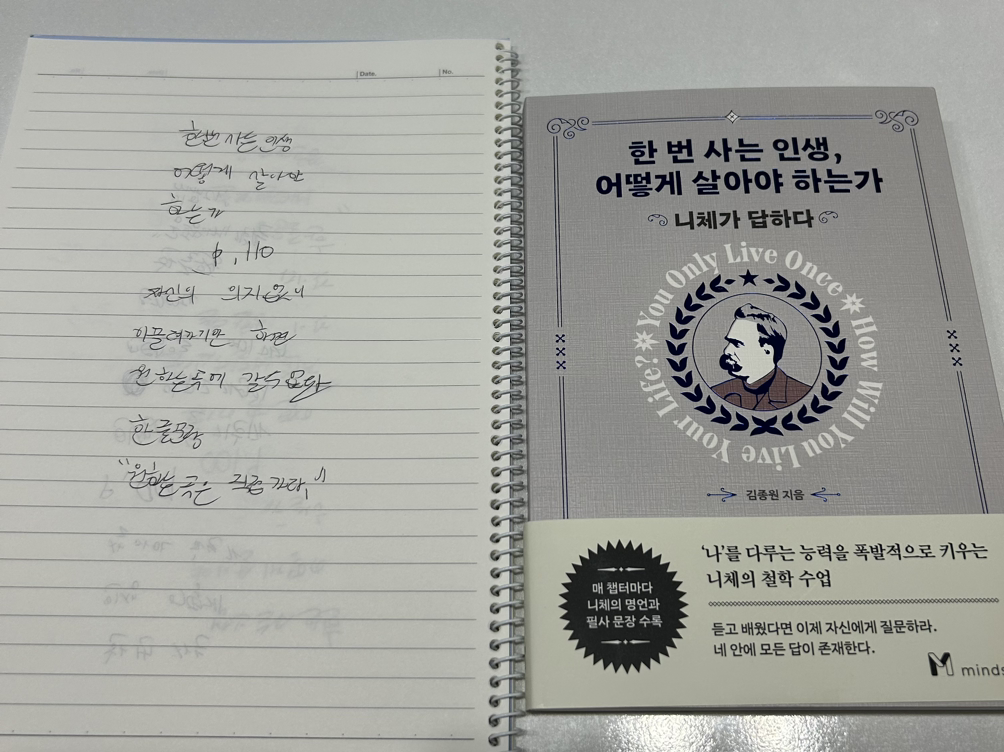 Date.
No.
한번 사는 인생
어떻게 살아야
하는가
p.110
자신의 의지없이
이끌려가기만 하면
원하는곳에 갈수없다
한줄요약
"원하는 곳은 직접 가라."
한 번 사는 인생,
어떻게 살아야 하는가
니체가 답하다
You Only Live Once
How Will You Live Your Life?
김종원 지음
매 챕터마다
니체의 명언과
필사 문장 수록
'나'를 다루는 능력을 폭발적으로 키우는
니체의 철학 수업
듣고 배웠다면 이제 자신에게 질문하라.
네 안에 모든 답이 존재한다.
minds